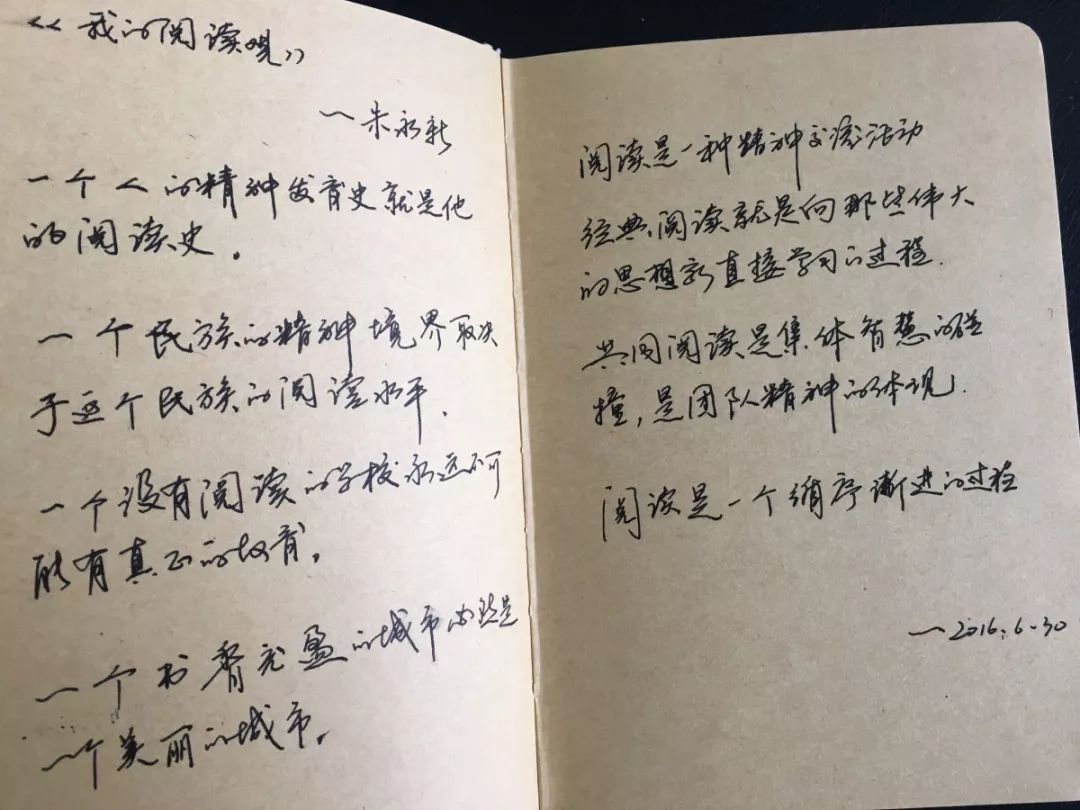 《我的阅读观》
—朱永新
一个人的精神发育史就是他
的阅读史。
一个民族的精神境界取决
于这个民族的阅读水平.
一个没有阅读的学校永远不可
能有真正的教育。
一个书香充盈的城市必然是
一个美丽的城市。
阅读是一种精神交流活动
经典阅读就是向那些伟大
的思想家直接学习的过程.
共同阅读是集体智慧的碰
撞,是团队精神的体现.
阅读是一个循序渐进的过程
—2016.6.30